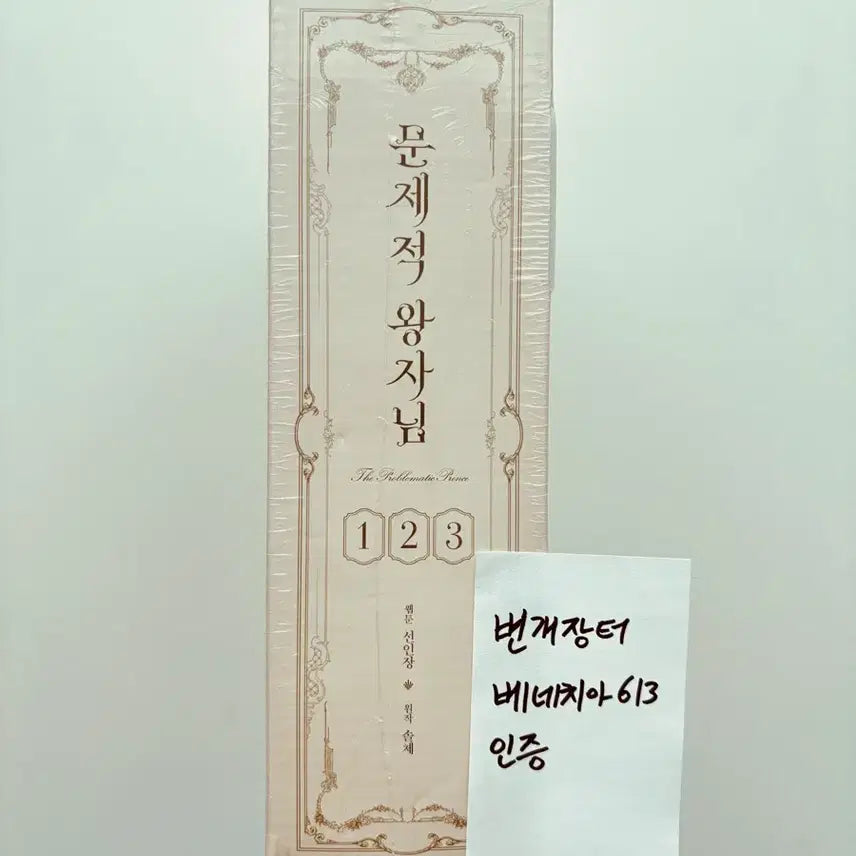 문제적 왕자님
The Problematic Prince
1 2 3
웹툰 선인장
원작 솔체
번개장터
베네치아613
인증